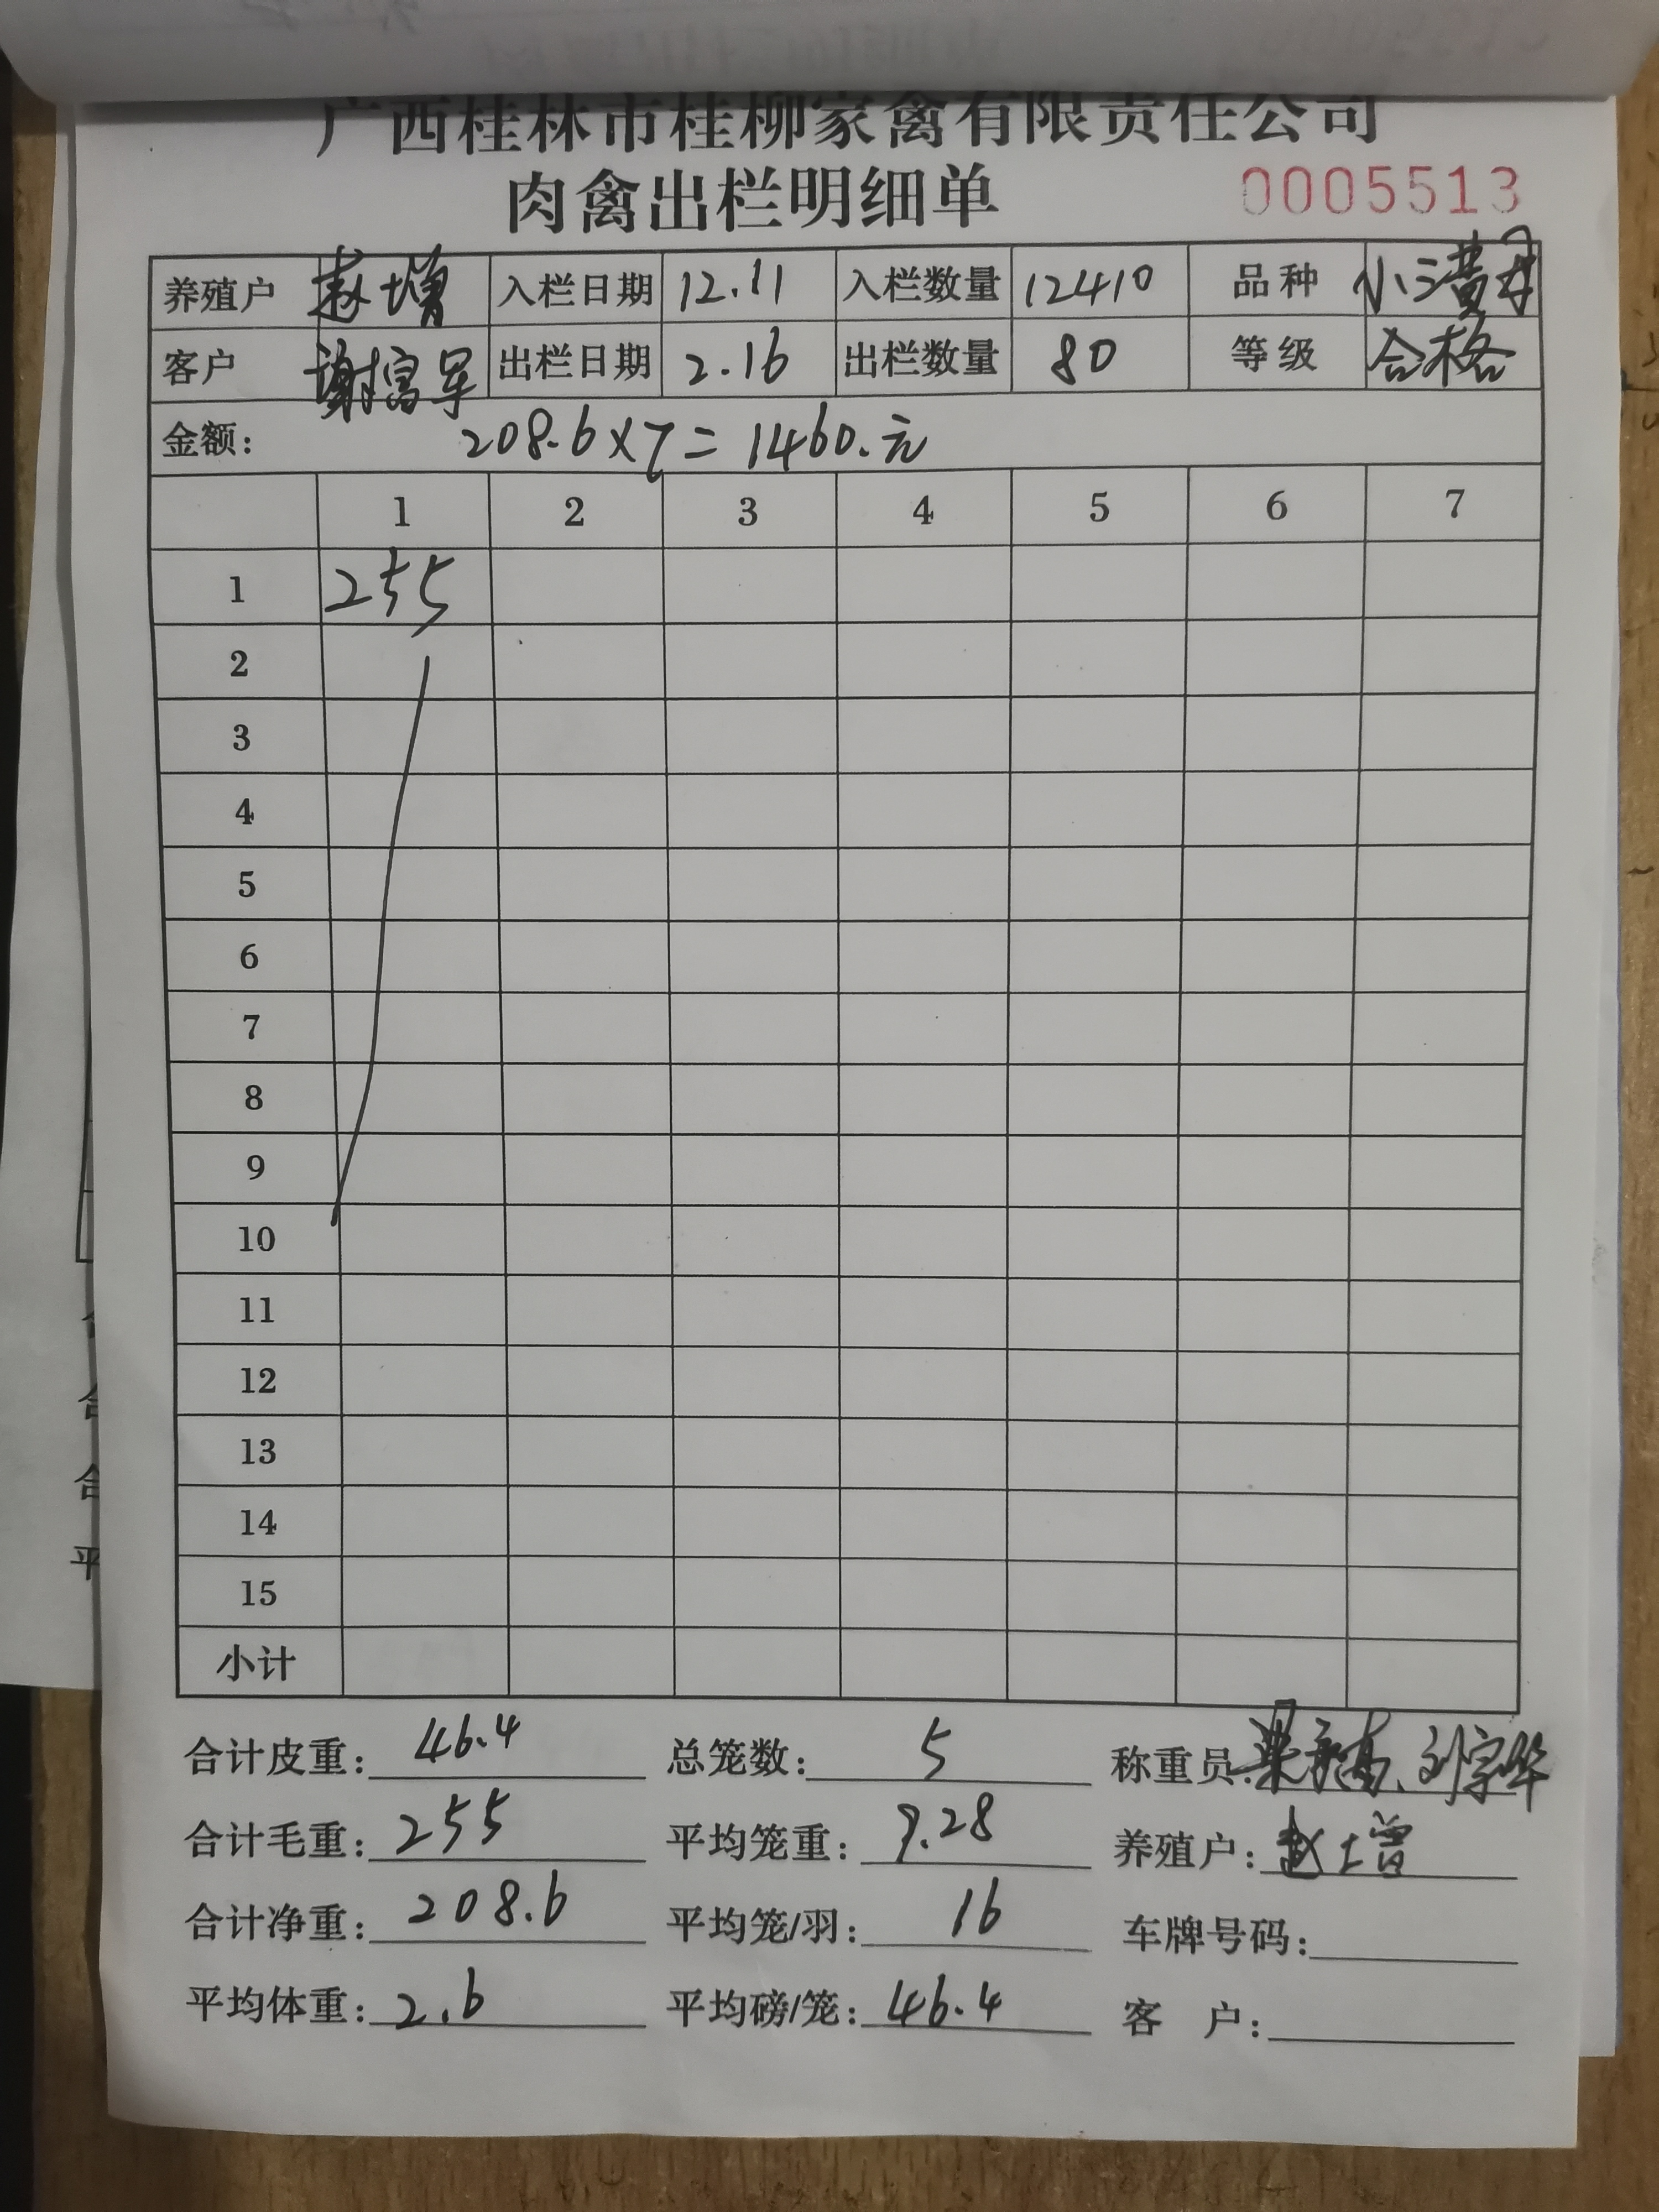 广西桂林市桂柳家禽有限责任公司
肉禽出栏明细单 0005513
养殖户 赵增 入栏日期 12.11 入栏数量 12410 品种 小三黄母
客户 谢富军 出栏日期 2.16 出栏数量 80 等级 合格
金额: 208.6×7=1460.元
1 2 3 4 5 6 7
1 255
2
3
4
5
6
7
8
9
10
11
12
13
14
15
小计
合计皮重: 46.4 总笼数: 5 称重员: 刘宗华
合计毛重: 255 平均笼重: 9.28 养殖户: 赵增
合计净重: 208.6 平均笼/羽: 16 车牌号码:
平均体重: 2.6 平均磅/笼: 46.4 客 户: